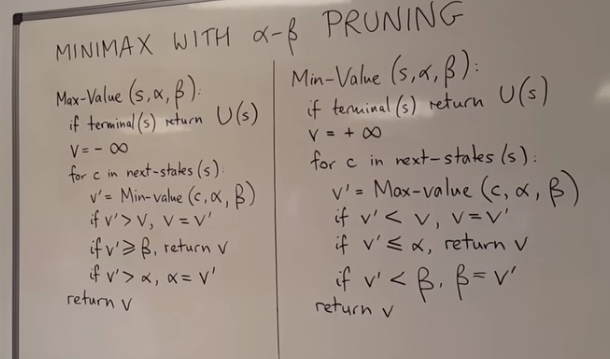 MINIMAX WITH α-β PRUNING
Max-Value (s,α,β):
if terminal(s) return U(s)
V = - ∞
for c in next-states (s):
v' = Min-value (c,α,β)
if v' > v, v = v'
if v' ≥ β, return v
if v' > α, α = v'
return v
Min-Value (s,α,β):
if terminal(s) return U(s)
V = + ∞
for c in next-states (s):
v' = Max-value (c, α, β)
if v' < v, v = v'
if v' ≤ α, return v
if v' < β, β = v'
return v